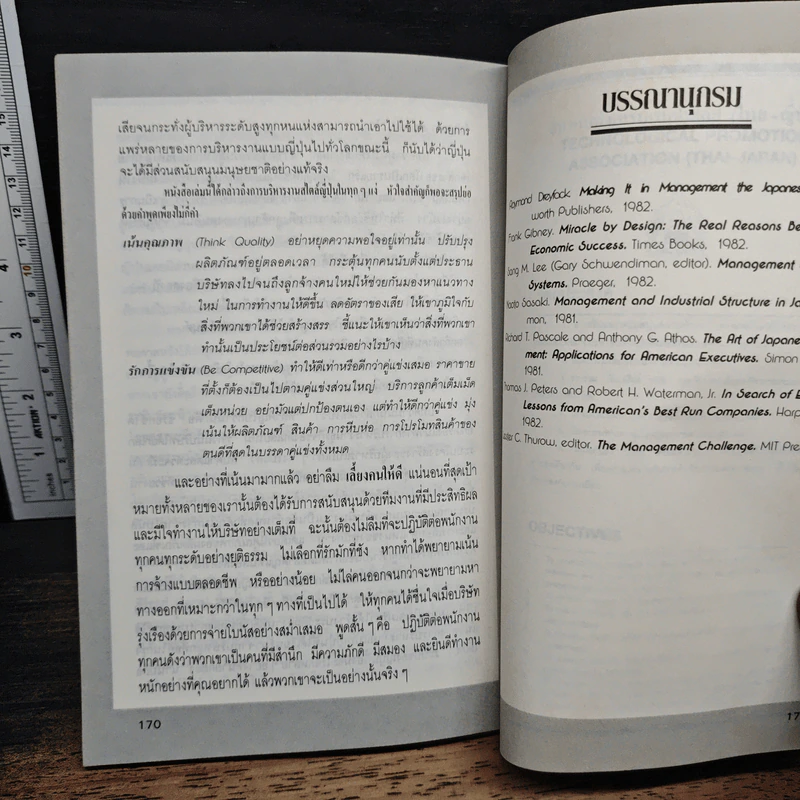 เสียจนกระทั่งผู้บริหารระดับสูงทุกหนแห่งสามารถนำเอาไปใช้ได้ ด้วยการ
แพร่หลายของการบริหารงานแบบญี่ปุ่นไปทั่วโลกขณะนี้ ก็นับได้ว่าญี่ปุ่น
จะได้มีส่วนสนับสนุนมนุษยชาติอย่างแท้จริง
หนังสือเล่มนี้ได้กล่าวถึงการบริหารงานสไตล์ญี่ปุ่นในทุก ๆ แง่ หัวใจสำคัญก็พอจะสรุปย่อ
ด้วยคำพูดเพียงไม่กี่คำ
เน้นคุณภาพ (Think Quality) อย่าหยุดความพอใจอยู่เท่านั้น ปรับปรุง
ผลิตภัณฑ์อยู่ตลอดเวลา กระตุ้นทุกคนนับตั้งแต่ประธาน
บริษัทลงไปจนถึงลูกจ้างคนใหม่ให้ช่วยกันมองหาแนวทาง
ใหม่ ในการทำงานให้ดีขึ้น ลดอัตราของเสีย ให้เขาภูมิใจกับ
สิ่งที่พวกเขาได้ช่วยสร้างสรร ชี้แนะให้เขาเห็นว่าสิ่งที่พวกเขา
ทำนั้นเป็นประโยชน์ต่อส่วนรวมอย่างไรบ้าง
รักการแข่งขัน (Be Competitive) ทำให้ดีเท่าหรือดีกว่าคู่แข่งเสมอ ราคาขาย
ที่ตั้งก็ต้องเป็นไปตามคู่แข่งส่วนใหญ่ บริการลูกค้าเต็มเม็ด
เต็มหน่วย อย่ามัวแต่ปกป้องตนเอง แต่ทำให้ดีกว่าคู่แข่ง มุ่ง
เน้นให้ผลิตภัณฑ์ สินค้า การหีบห่อ การโปรโมทสินค้าของ
ตนดีที่สุดในบรรดาคู่แข่งทั้งหมด
และอย่างที่เน้นมามากแล้ว อย่าลืม เลี้ยงคนให้ดี แน่นอนที่สุดเป้า
หมายทั้งหลายของเรานั้นต้องได้รับการสนับสนุนด้วยทีมงานที่มีประสิทธิผล
และมีใจทำงานให้บริษัทอย่างเต็มที่ ฉะนั้นต้องไม่ลืมที่จะปฏิบัติต่อพนักงาน
ทุกคนทุกระดับอย่างยุติธรรม ไม่เลือกที่รักมักที่ชัง หากทำได้พยายามเน้น
การจ้างแบบตลอดชีพ หรืออย่างน้อย ไม่ไล่คนออกจนกว่าจะพยายามหา
ทางออกที่เหมาะกว่าในทุก ๆ ทางที่เป็นไปได้ ให้ทุกคนได้ชื่นใจเมื่อบริษัท
รุ่งเรืองด้วยการจ่ายโบนัสอย่างสม่ำเสมอ พูดสั้น ๆ คือ ปฏิบัติต่อพนักงาน
ทุกคนดังว่าพวกเขาเป็นคนที่มีสำนึก มีความภักดี มีสมอง และยินดีทำงาน
หนักอย่างที่คุณอยากได้ แล้วพวกเขาจะเป็นอย่างนั้นจริง ๆ
170
บรรณานุกรม
Raymond Dreyfack. Making It in Management the Japanese
worth Publishers, 1982.
Frank Gibney. Miracle by Design: The Real Reasons Be
Economic Success. Times Books, 1982.
Sang M. Lee (Gary Schwendiman, editor). Management
Systems. Praeger, 1982.
Naoto Sasaki. Management and Industrial Structure in Ja
mon, 1981.
Richard T. Pascale and Anthony G. Athos. The Art of Japane
ment: Applications for American Executives. Simon
1981.
Thomas J. Peters and Robert H. Waterman, Jr. In Search of E
Lessons from American's Best Run Companies. Harp
1982.
Lester C. Thurow, editor. The Management Challenge. MIT Pre
17